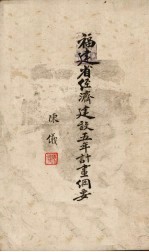 福建省经濟建設五年計畫綱要
陳儀